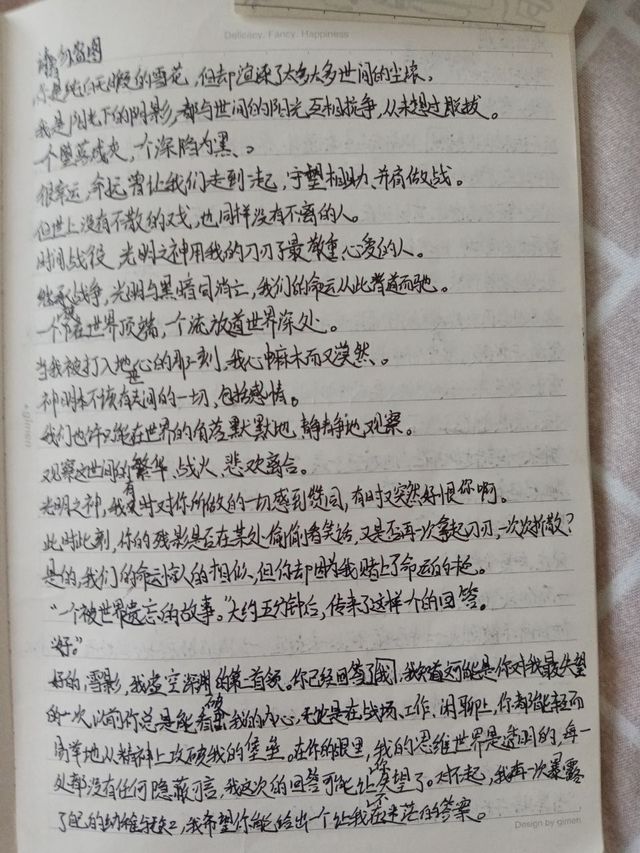 Delicacy, Fancy, Happiness
请勿盗图
你是纯白无瑕的雪花，但却渲染了太多太多世间的尘埃。
我是阳光下的阴影，都与世间的阳光互相抗争，从未想过脱拔。
一个坠落成灰，一个深陷为黑、。
很幸运，命运曾让我们走到一起，守望相助、并肩做战。
但世上没有不散的戏，也同样没有不离的人。
时间战役，光明之神用我的刀刃了最敬重、心爱的人。
战争，光明与黑暗同消亡，我们的命运从此背道而驰。
一个在世界顶端，一个流放道世界深处。
当我被打入地心的那一刻，我心中麻木而又漠然、。
神明本不该有世间的一切，包括感情。
我们也许只能在世界的角落默默地，静静地观察。
观察这世间的繁华、战火、悲欢离合。
光明之神，我有时对你所做的一切感到赞同，有时又突然好恨你啊。
此时此刻，你的残影是否在某处偷偷看笑话，又是否再一次拿起刀刃，一次次折散？
是的，我们的命运惊人的相似、但你却因为我赌上了命运的。
“一个被世界遗忘的故事。”大约五分钟后，传来了这样一个的回答。
“好。”
好的，雪影，我虚空深渊的第二首领。你已经回答了我，我知道这可能是你对我最失望
的一次，以前你总是能看破我的内心，无论是在战场、工作、闲聊上，你都能轻而
易举地从精神上攻破我的堡垒。在你的眼里，我的思维世界是透明的，每一
处都没有任何隐蔽可言，我这次的回答可能让你失望了。对不起，我再一次暴露
了自己的幼稚与缺，我希望你能给出一个让我不在迷茫的答案。
gimen
Design by gimen